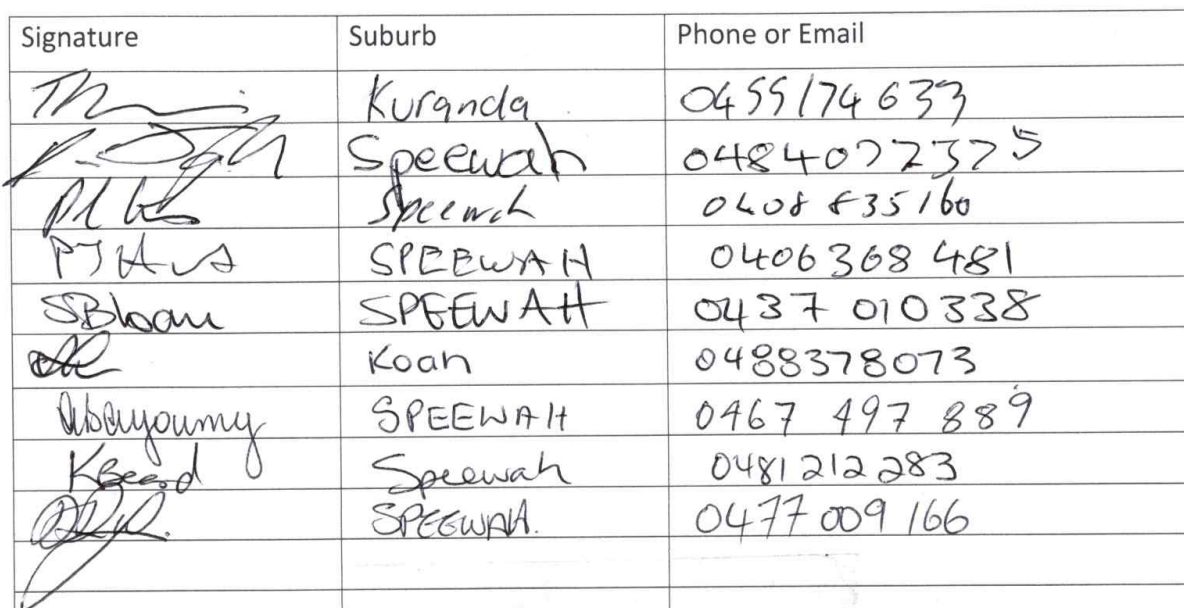 Signature Suburb Phone or Email
Kuranda 0455174633
Speewah 0484072375
Speewah 0408 835160
SPEEWAH 0406368 481
SBloam SPEEWAH 0437 010338
Koah 0488378073
Abayoumy SPEEWAH 0467 497 889
KBeard Speewah 0481 212 283
SPEEWAH. 0477 009 166